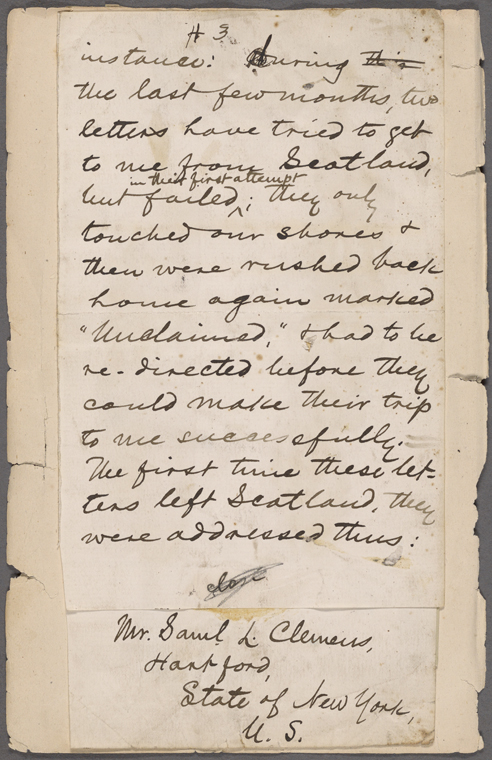 # 3
instance: During this
the last few months, two
letters have tried to get
to me from Scotland,
in their first attempt
but failed; they only
touched our shores &
then were rushed back
home again marked
"Unclaimed," & had to be
re-directed before they
could make their trip
to me successfully.
The first time these let-
ters left Scotland, they
were addressed thus:
Mr. Saml. L. Clemens,
Hartford,
State of New York,
U. S.